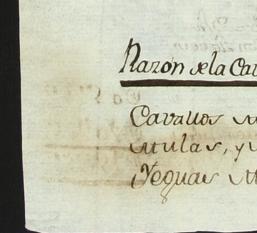 Razon de la Cav
Cavallos
Mulas, y
Yeguas